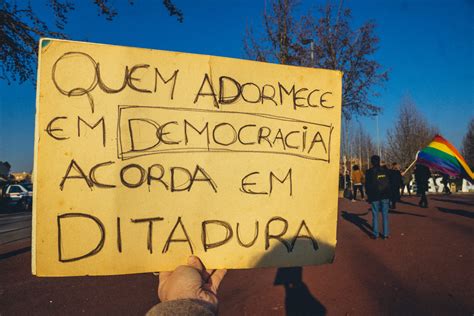 QUEM ADORMECE
EM DEMOCRACIA
ACORDA EM
DITADURA